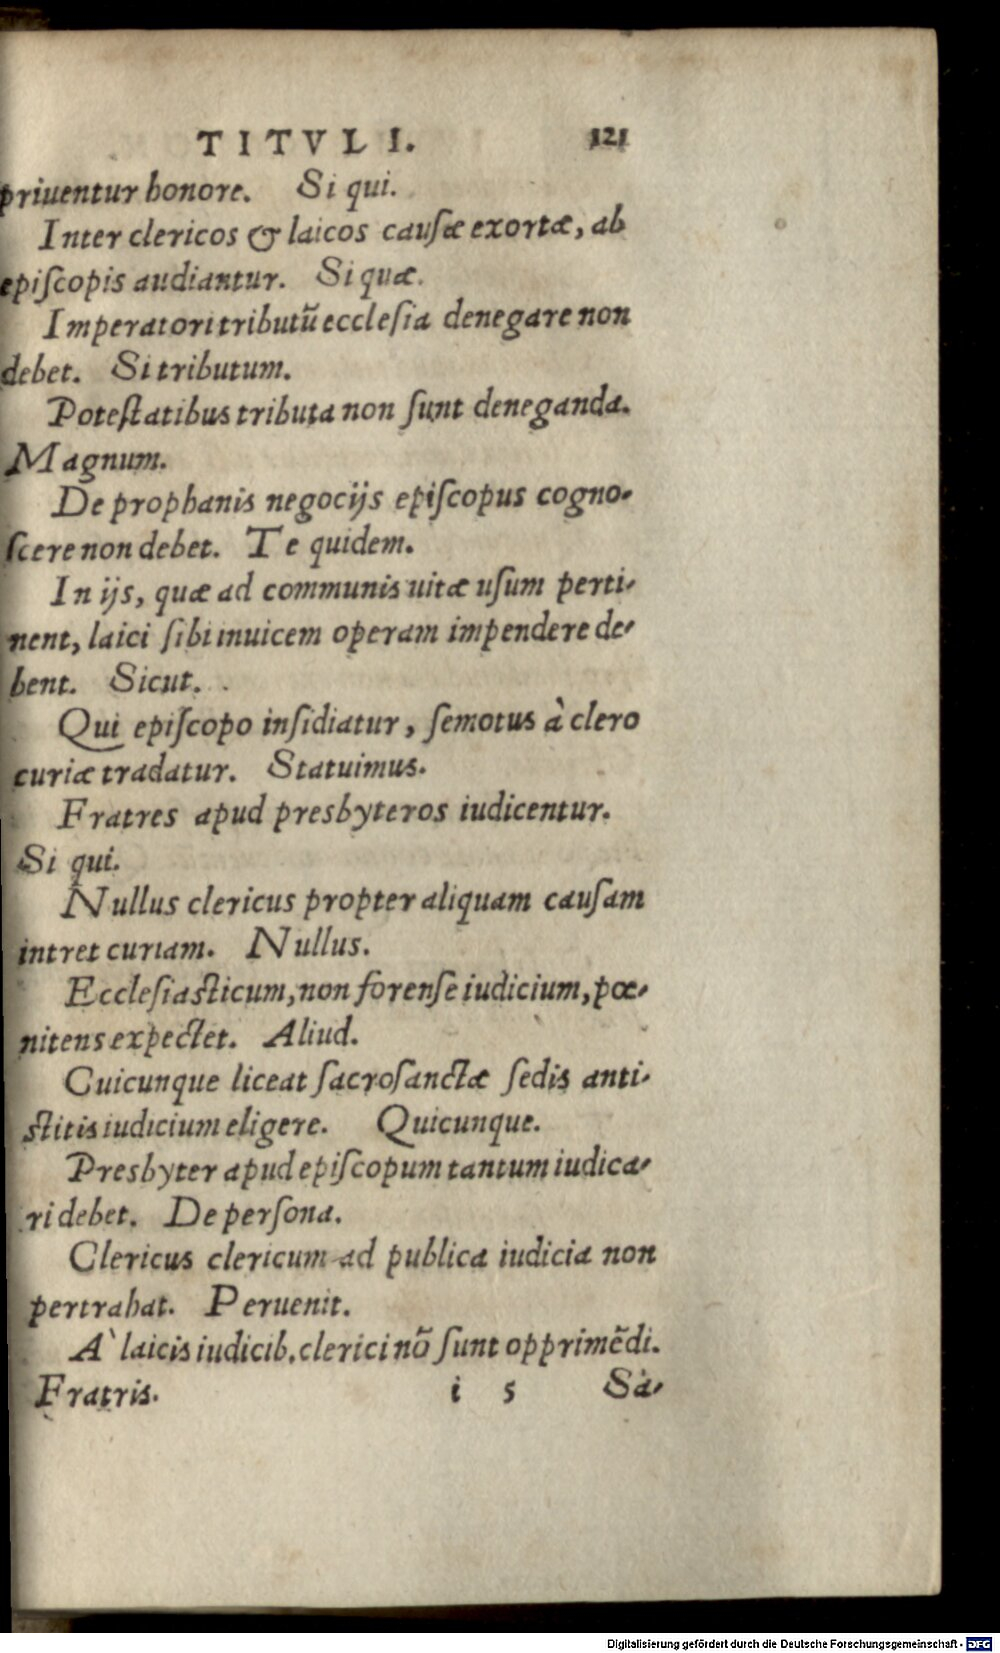 TITVLI. 121
priuentur honore. Si qui.
Inter clericos & laicos cauſæ exortæ, ab
epiſcopis audiantur. Si quæ.
Imperatori tributũ eccleſia denegare non
debet. Si tributum.
Poteſtatibus tributa non ſunt deneganda.
Magnum.
De prophanis negocijs epiſcopus cogno-
ſcere non debet. Te quidem.
In ijs, quæ ad communis uitæ uſum perti-
nent, laici ſibi inuicem operam impendere de-
bent. Sicut.
Qui epiſcopo inſidiatur, ſemotus à clero
curiæ tradatur. Statuimus.
Fratres apud presbyteros iudicentur.
Si qui.
Nullus clericus propter aliquam cauſam
intret curiam. Nullus.
Eccleſiaſticum, non forenſe iudicium, pœ-
nitens expectet. Aliud.
Cuicunque liceat ſacroſanctæ ſedis anti-
ſtitis iudicium eligere. Quicunque.
Presbyter apud epiſcopum tantum iudica-
ri debet. De perſona.
Clericus clericum ad publica iudicia non
pertrahat. Peruenit.
A` laicis iudicib. clerici nõ ſunt opprimẽdi.
Fratris. i 5 Sa-
Digitalisierung gefördert durch die Deutsche Forschungsgemeinschaft - DFG